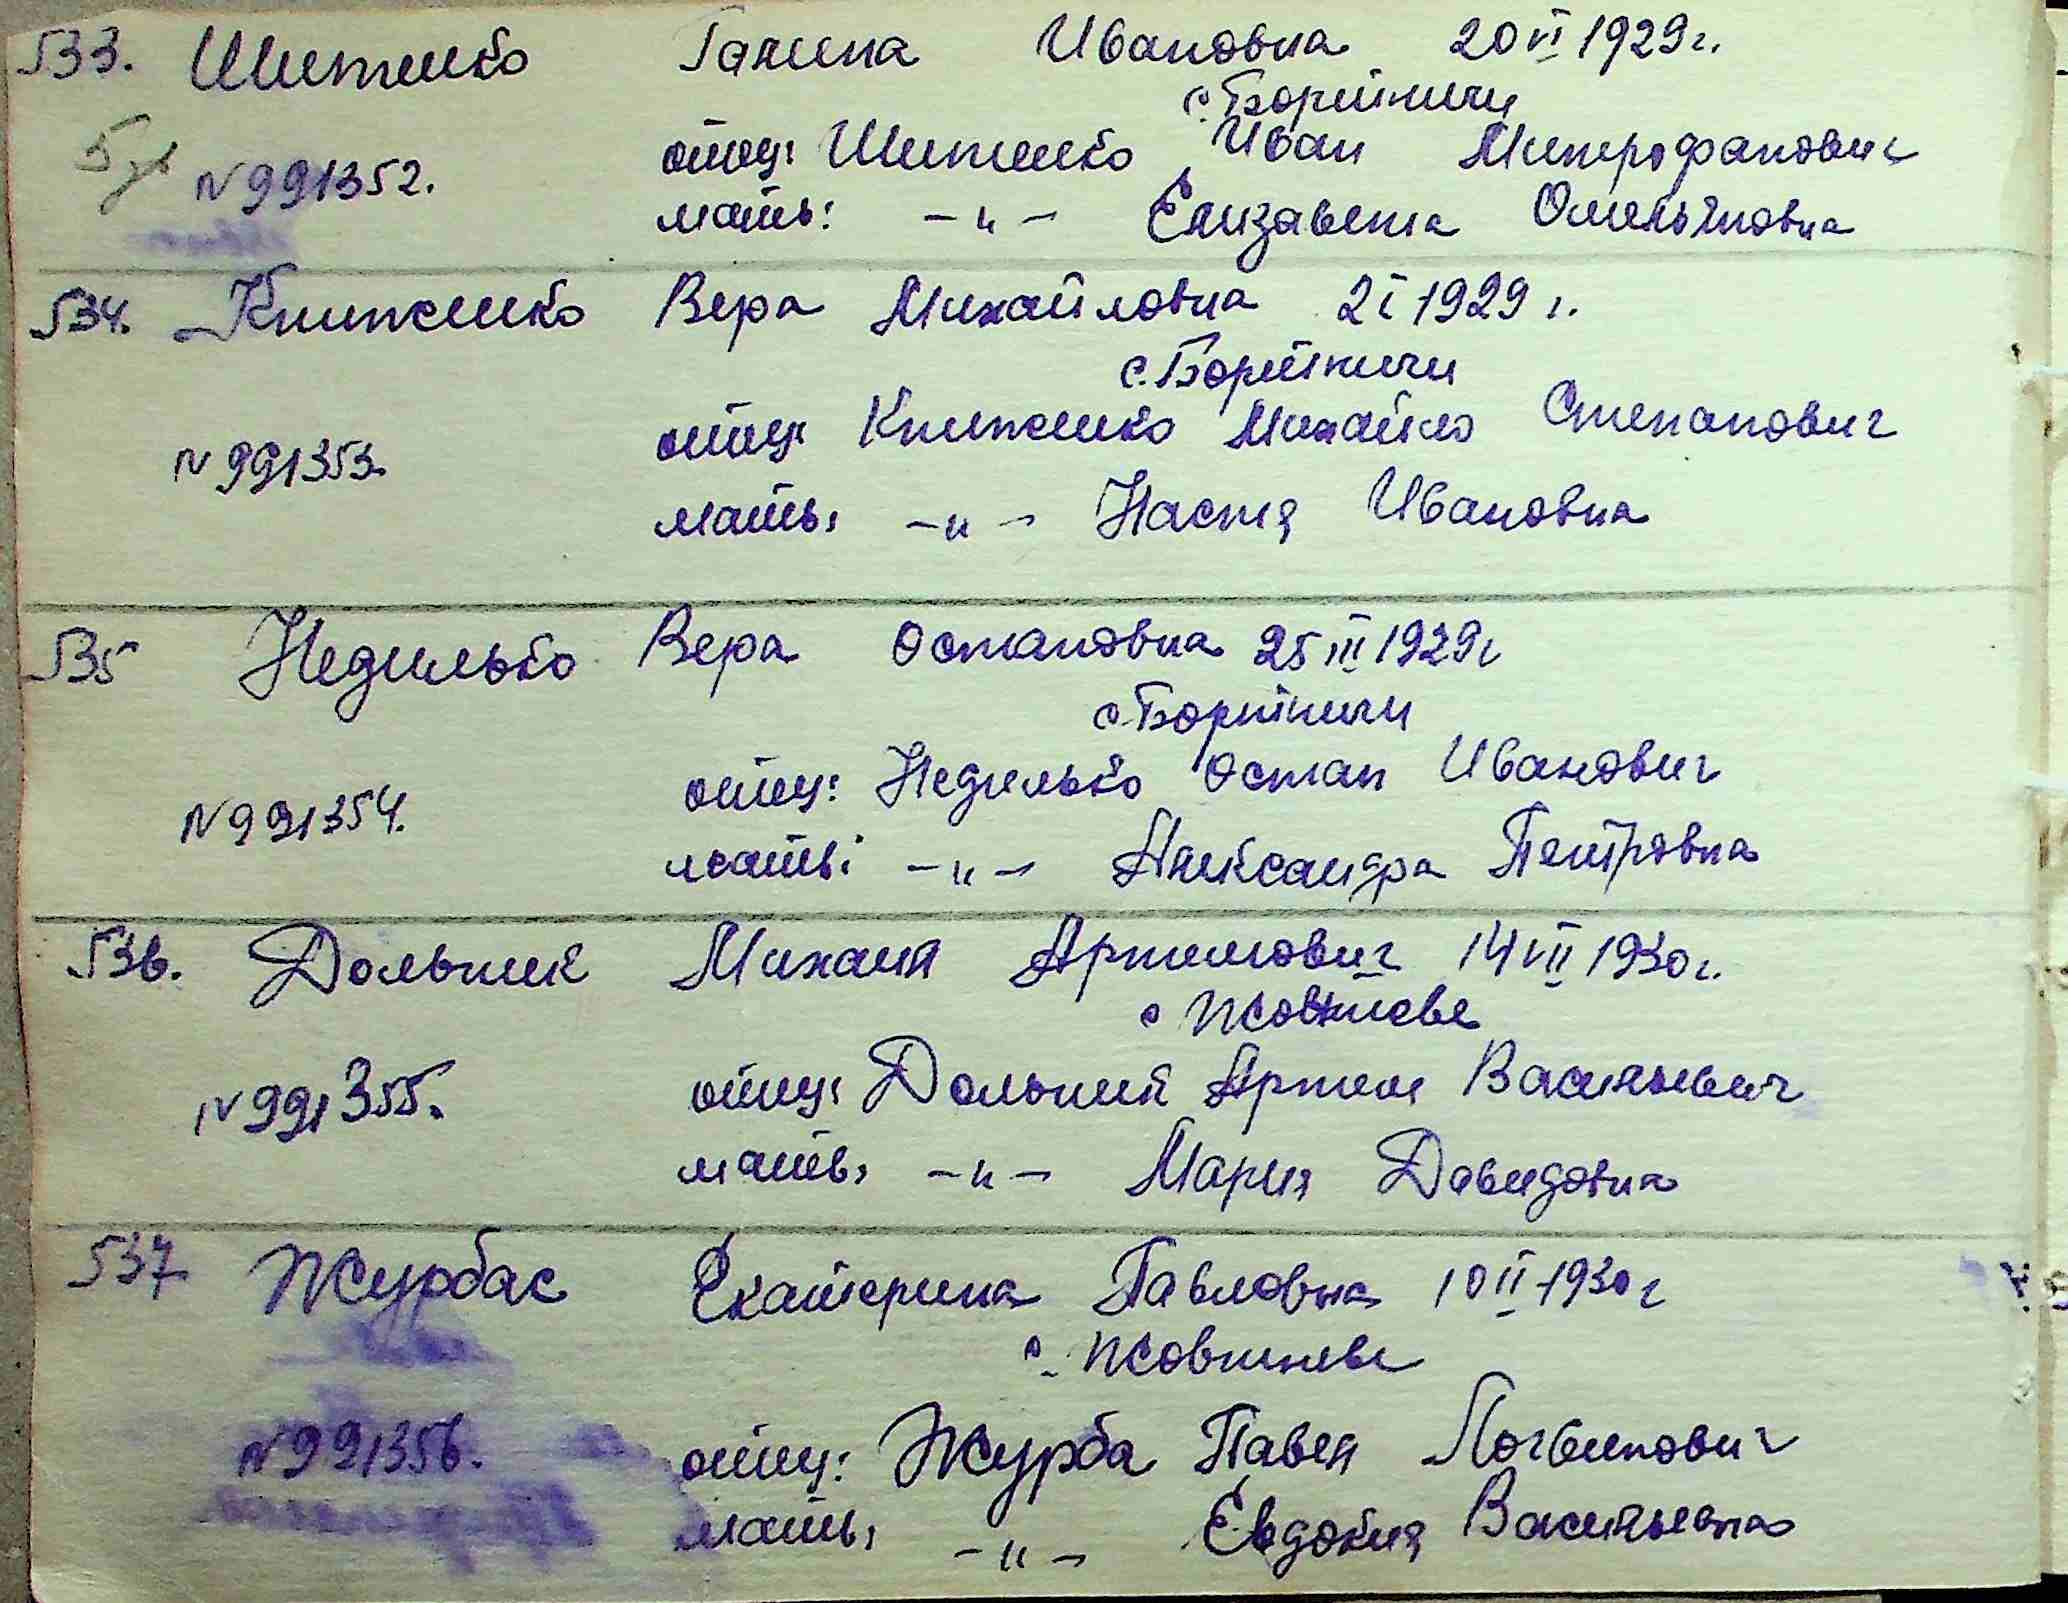 533. Шитенко Ганина Ивановна 20 VI 1929 г.
с. Бортничи
отец: Шитенко Иван Митрофанович
N 991352.
мать: —"— Елизавета Омельяновна
534. Книженко Вера Михайловна 2 I 1929 г.
с. Бортничи
отец: Книженко Михайло Степанович
N 991353.
мать: —"— Настя Ивановна
535 Недилько Вера Остаповна 25 III 1929 г
с. Бортничи
отец: Недилько Остап Иванович
N 991354.
мать: —"— Александра Петровна
536. Дольник Михаил Артемович 14 VII 1930 г.
с Жовтневе
отец: Дольний Артем Васильевич
N 991355.
мать: —"— Мария Давидовна
537 Журбас Екатерина Павловна 10 II 1930 г
с. Жовтневе
отец: Журба Павел Логвинович
N 991356.
мать: —"— Евдокия Васильевна